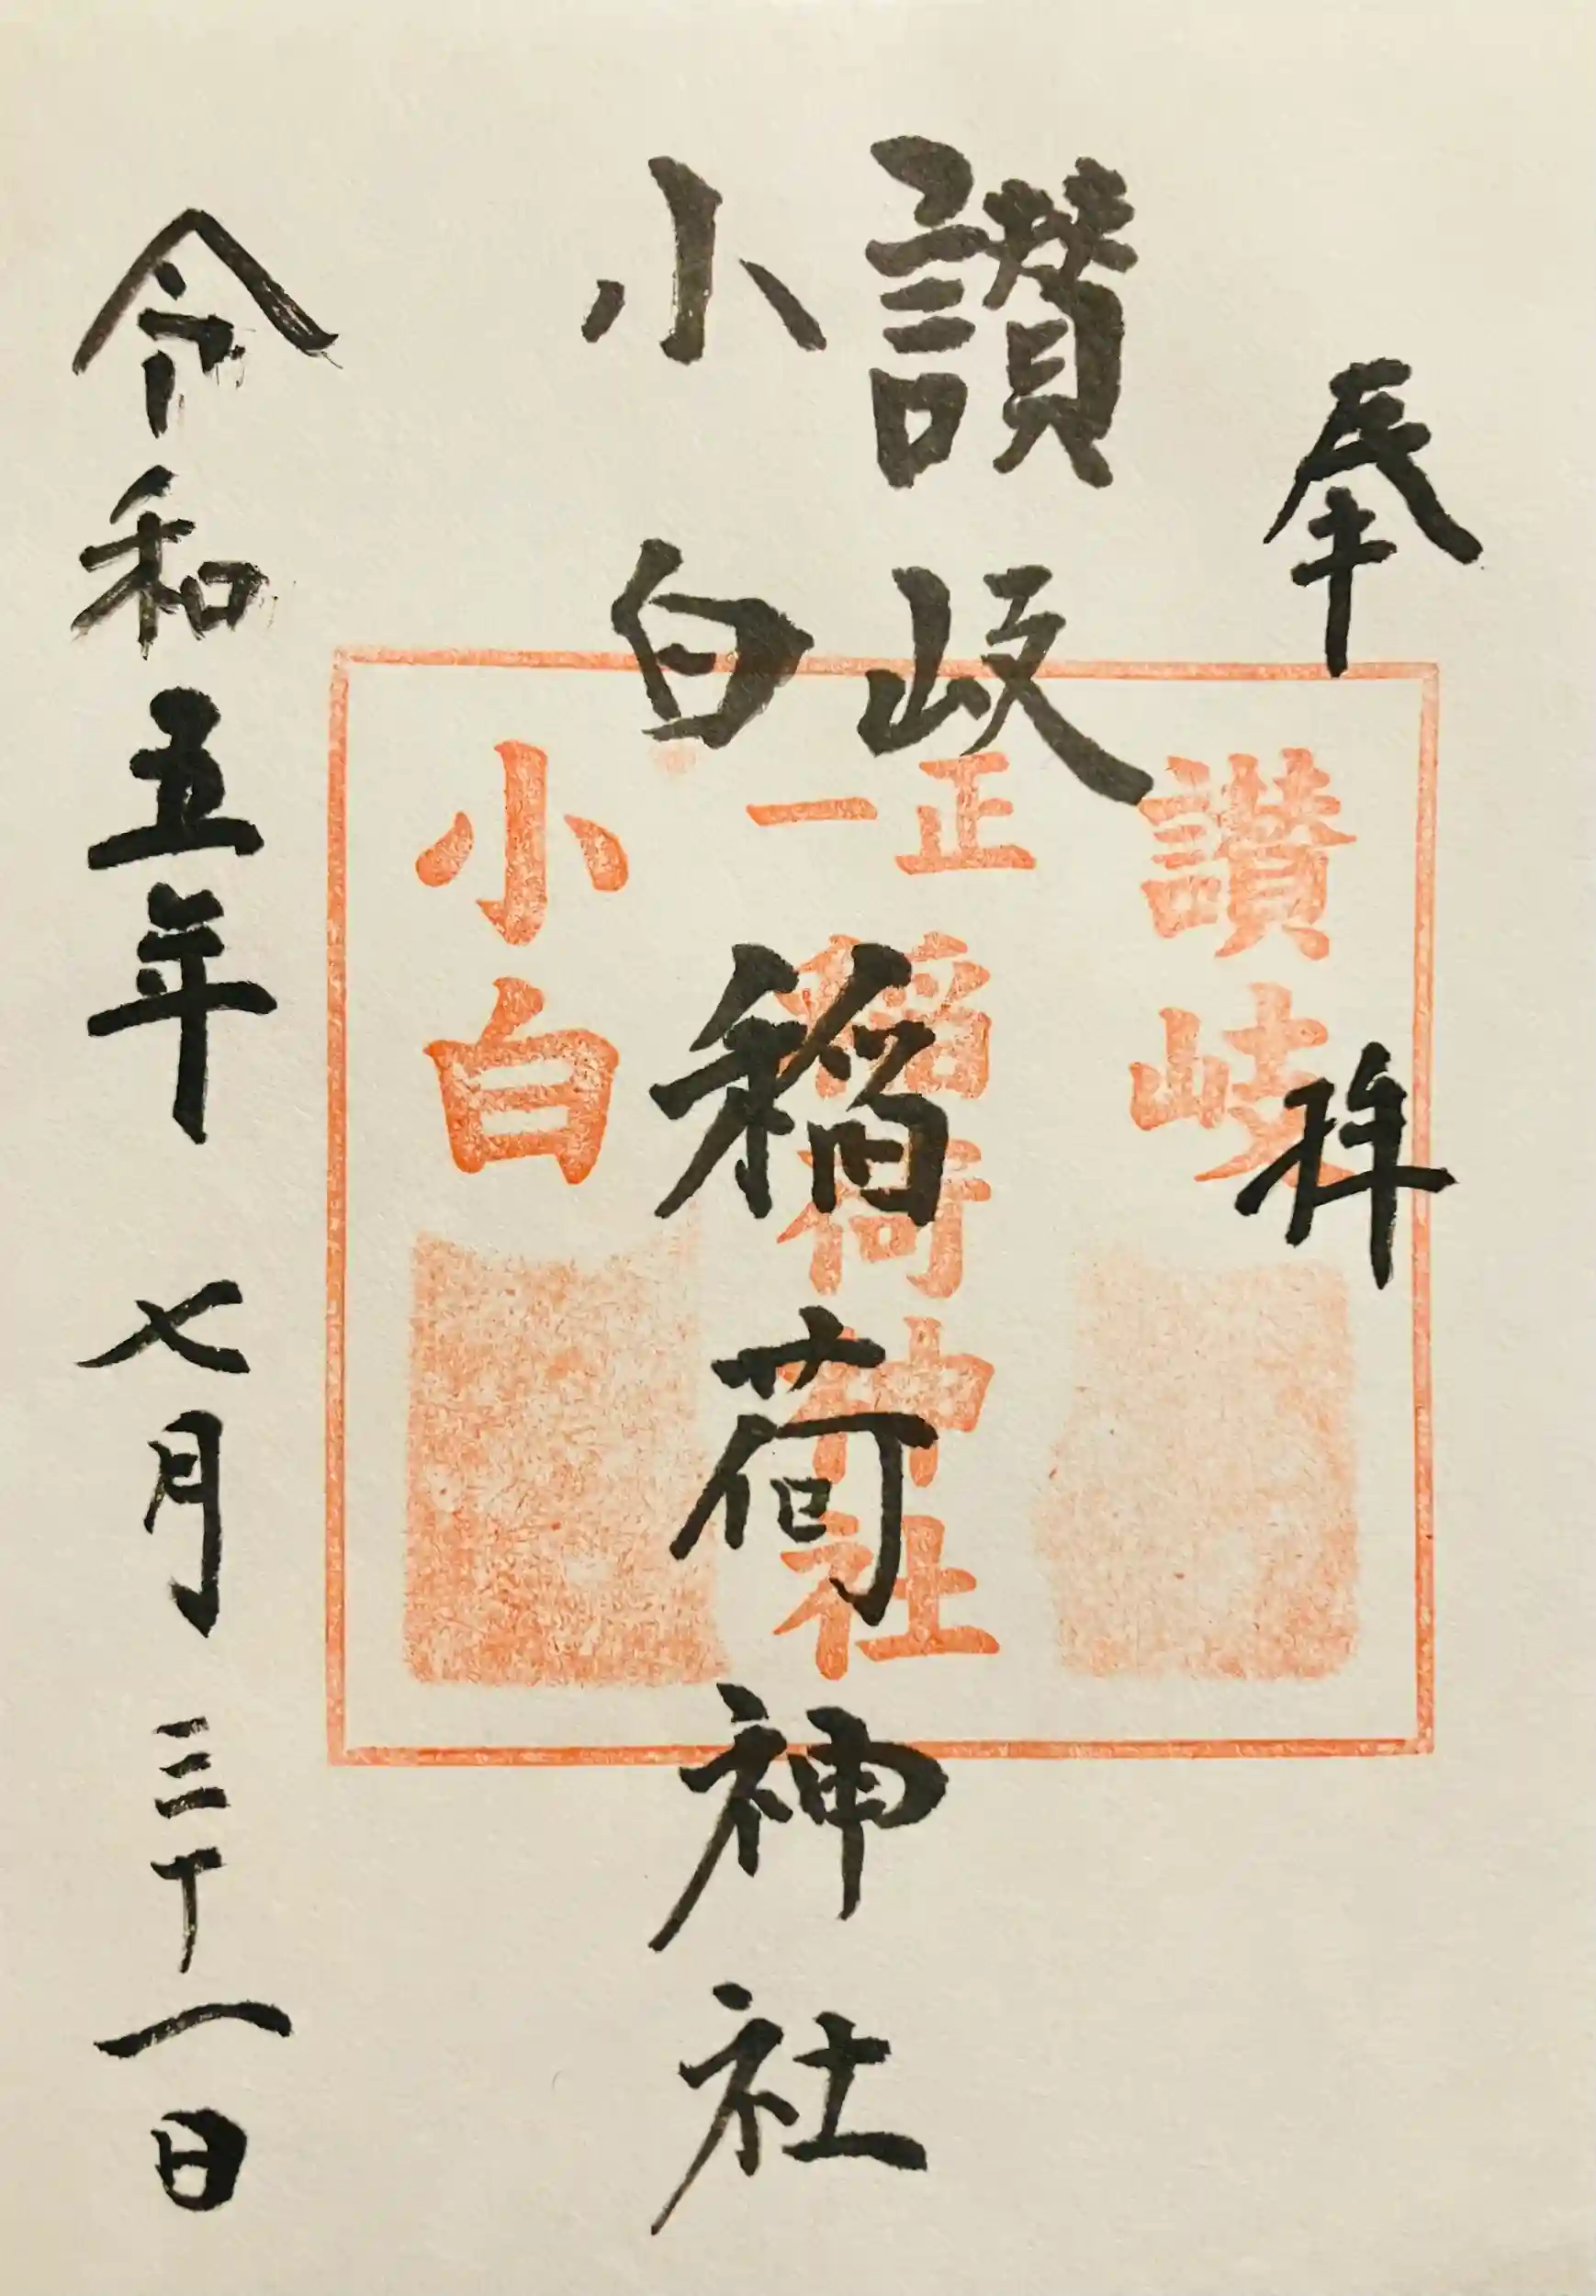 奉拝
讃岐
小白
稲荷神社
令和五年 七月 三十一日
讃岐
正一
稲荷神社
小白